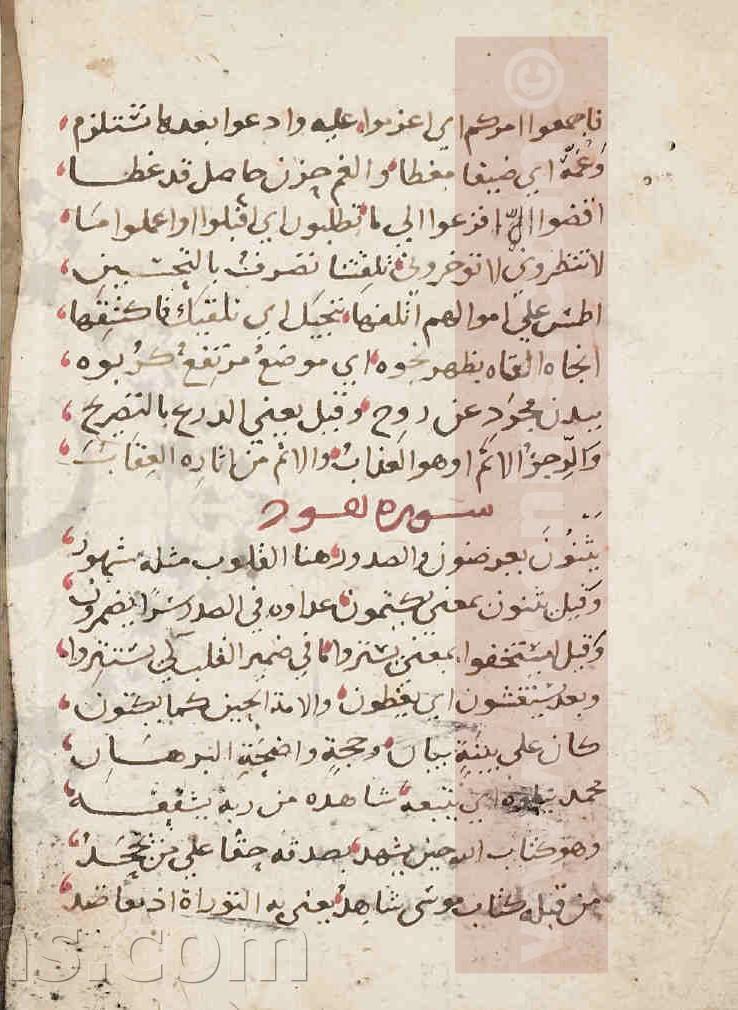 فاجمعوا امركم اي اعزموا عليه وادعوا بعدها تستلزم
وغمة اي ضيقا مغطا والغم حزن حاصل قد غطا
اقضوا الي افزعوا الي ما تطلبون اي اقبلوا واعملوا
لا تنظروني لا توخروني تلفتنا تصرف بالتحسين
اطمس علي اموالهم اتلفها ننجيك اي نلقيك فاكشفها
انجاه القاه بظهر نجوه اي موضع مرتفع كربوه
ببدن مجرد عن روح وقيل يعني الدرع بالتصريح
والرجز الاثم او هو العذاب والاثم من اثاره العقاب
سورة هود
يثنون يعرضون والصدور هنا القلوب مثله
وقيل يثنون بمعني يكتمون عداوه في الصدر سرا يضمرون
وقيل ليستخفوا بمعني يستتروا ما في ضمير القلب كي يستتروا
وبعد يستغشون اي يغطون والامة الحين كما يكتون
كان علي بينة بيان وحجة واضحة البرهان
محمد يتلوه اي يتبعه شاهده من ربه
وهو كتاب الله حين يشهد بصدقه حقا علي من يجحد
من قبله كتاب موسي شاهد يعني به التوراة اذ تعاضد
©
ns.com